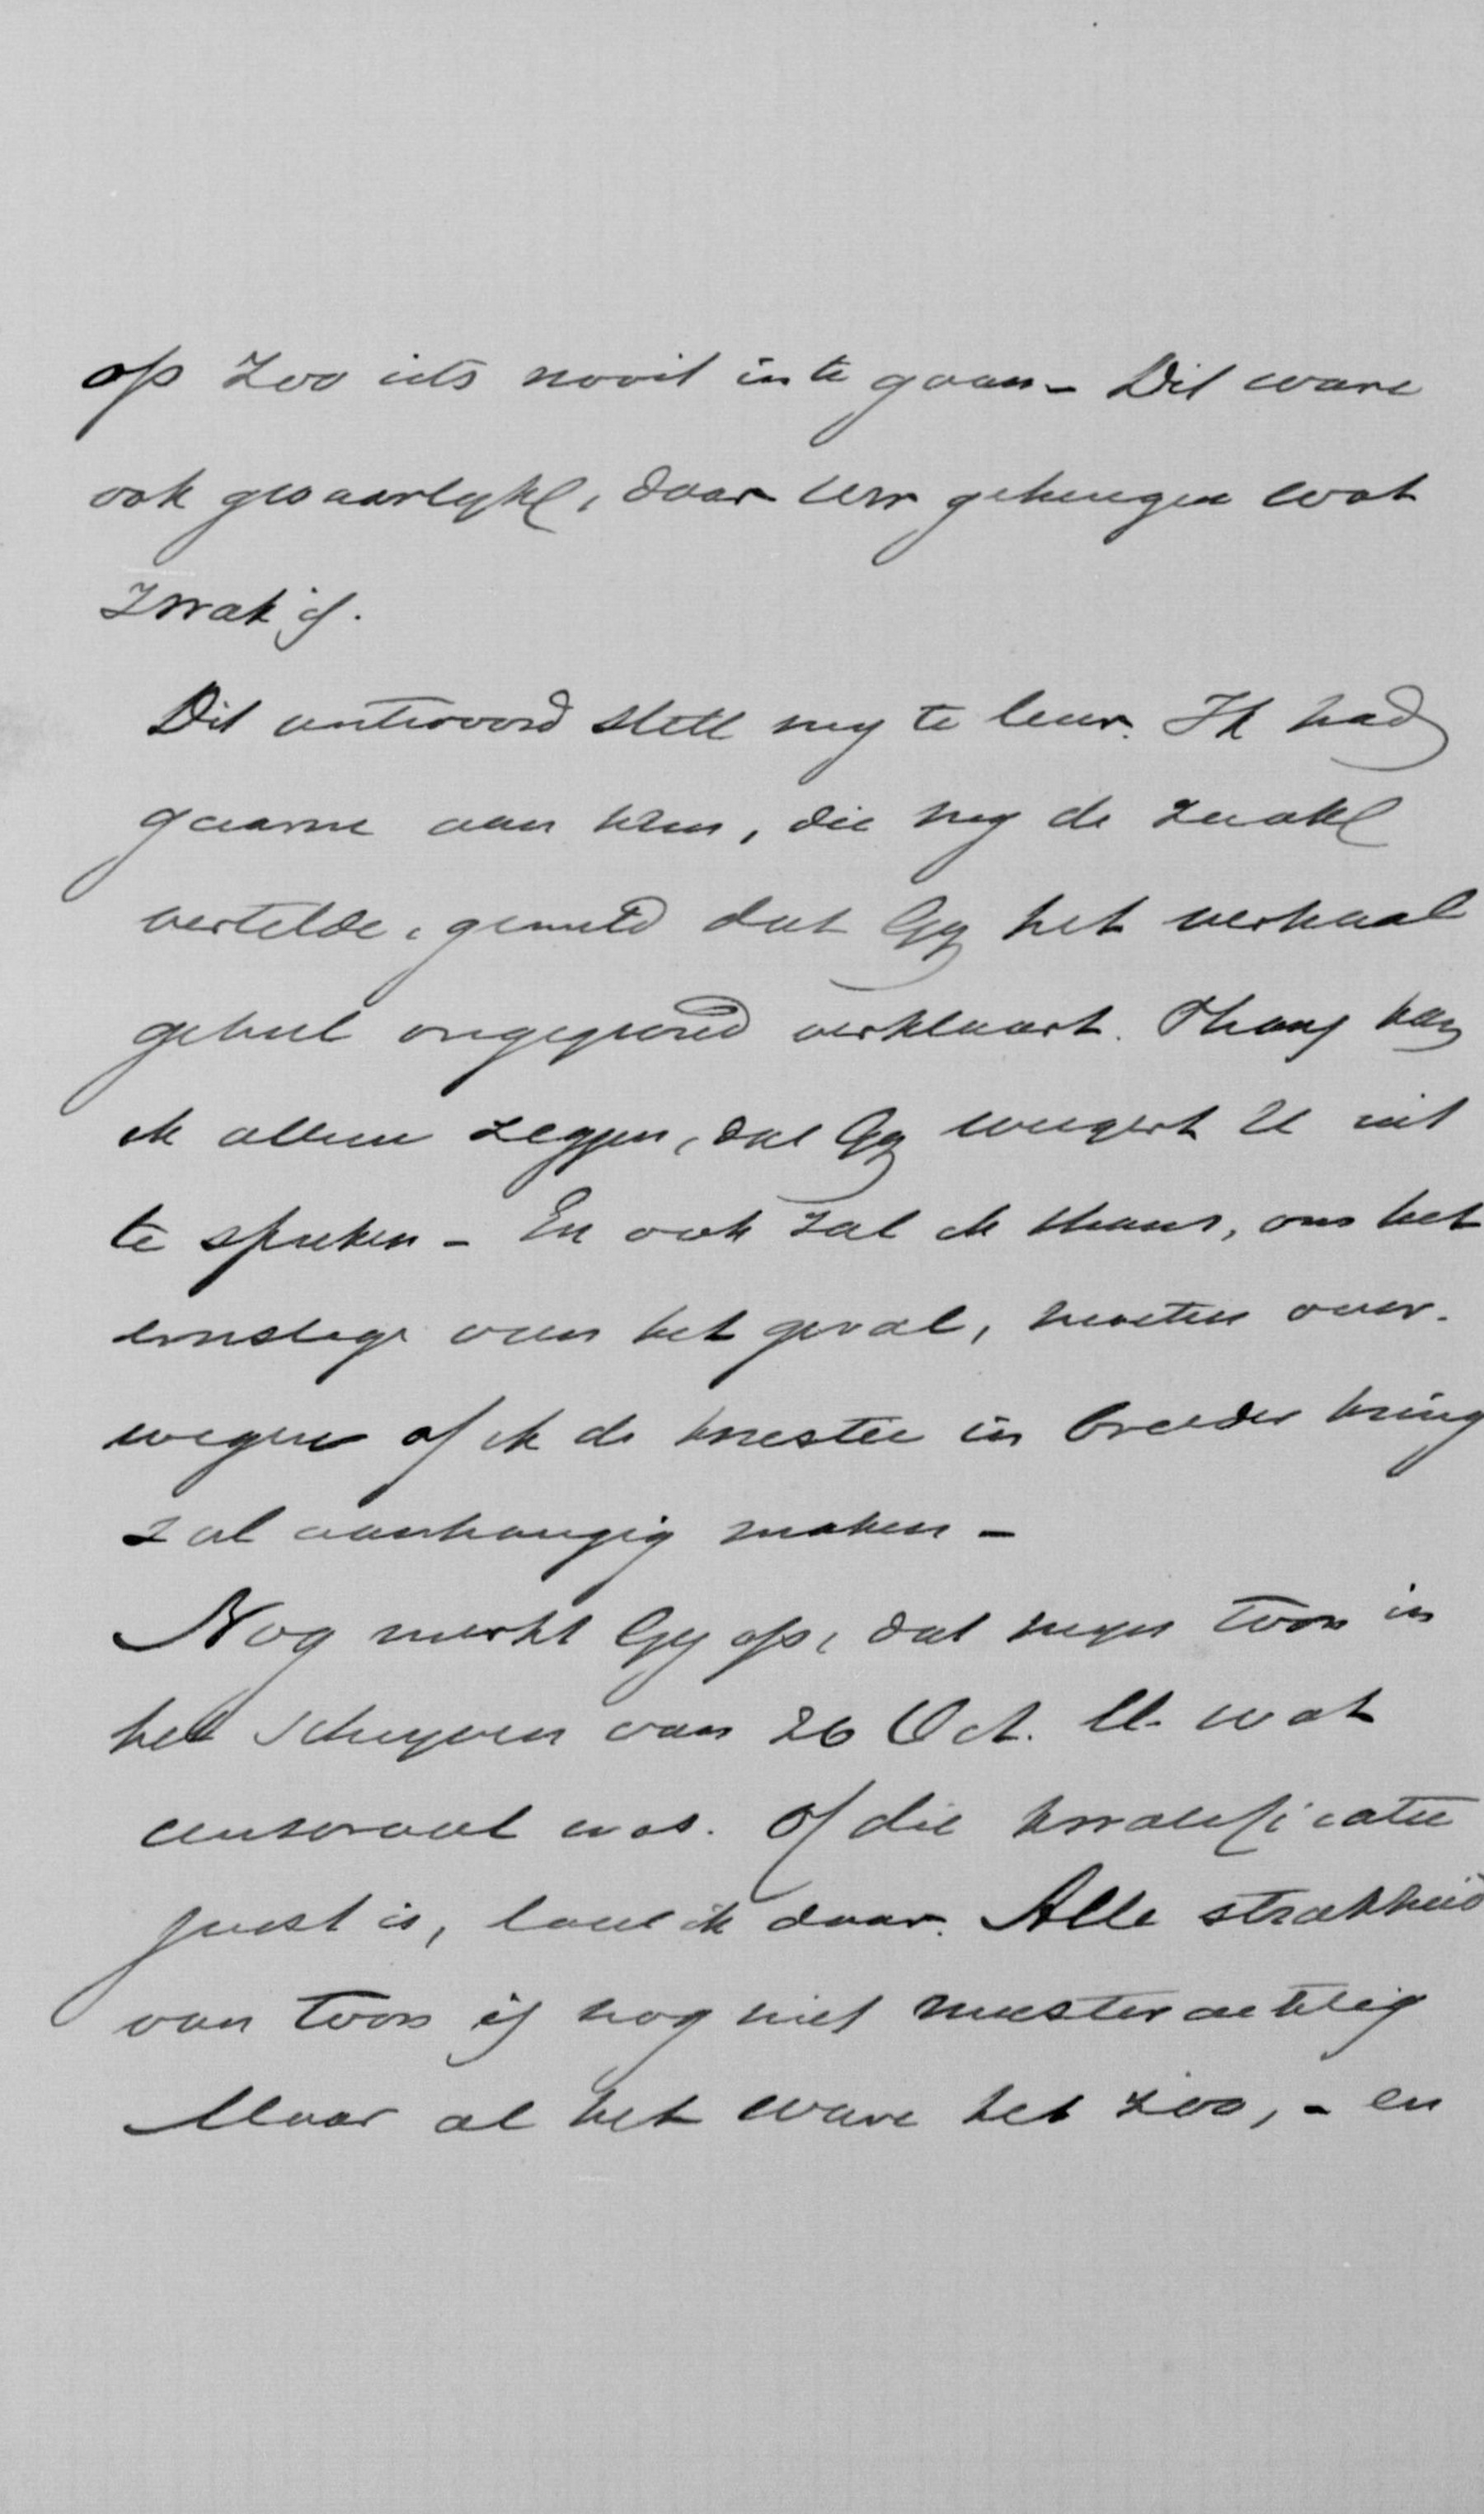 op zoo iets nooit in te gaan – Dit ware
ook gevaarlyk, daar Uw geheugen wat
zwak is.
Dit antwoord stelt my te leur. Ik had
gaarne aan hem, die my de zaak
vertelde, gemeld dat Gy het verhaal
geheel ongegrond verklaart. Thans kan
ik alleen zeggen, dat Gy weigert U uit
te spreken – En ook zal ik thans, om het
ernstige van het geval, moeten over-
wegen of ik de kwestie in breeder kring
zal aanhangig maken –
Nog merkt Gy op, dat myn toon in
het schryven van 26 Oct. ll. wat
was. Of die kwalificatie
juist is, laat ik daar. Alle strakheid
van toon is nog niet meesterachtig
Maar al het ware het zoo, – en